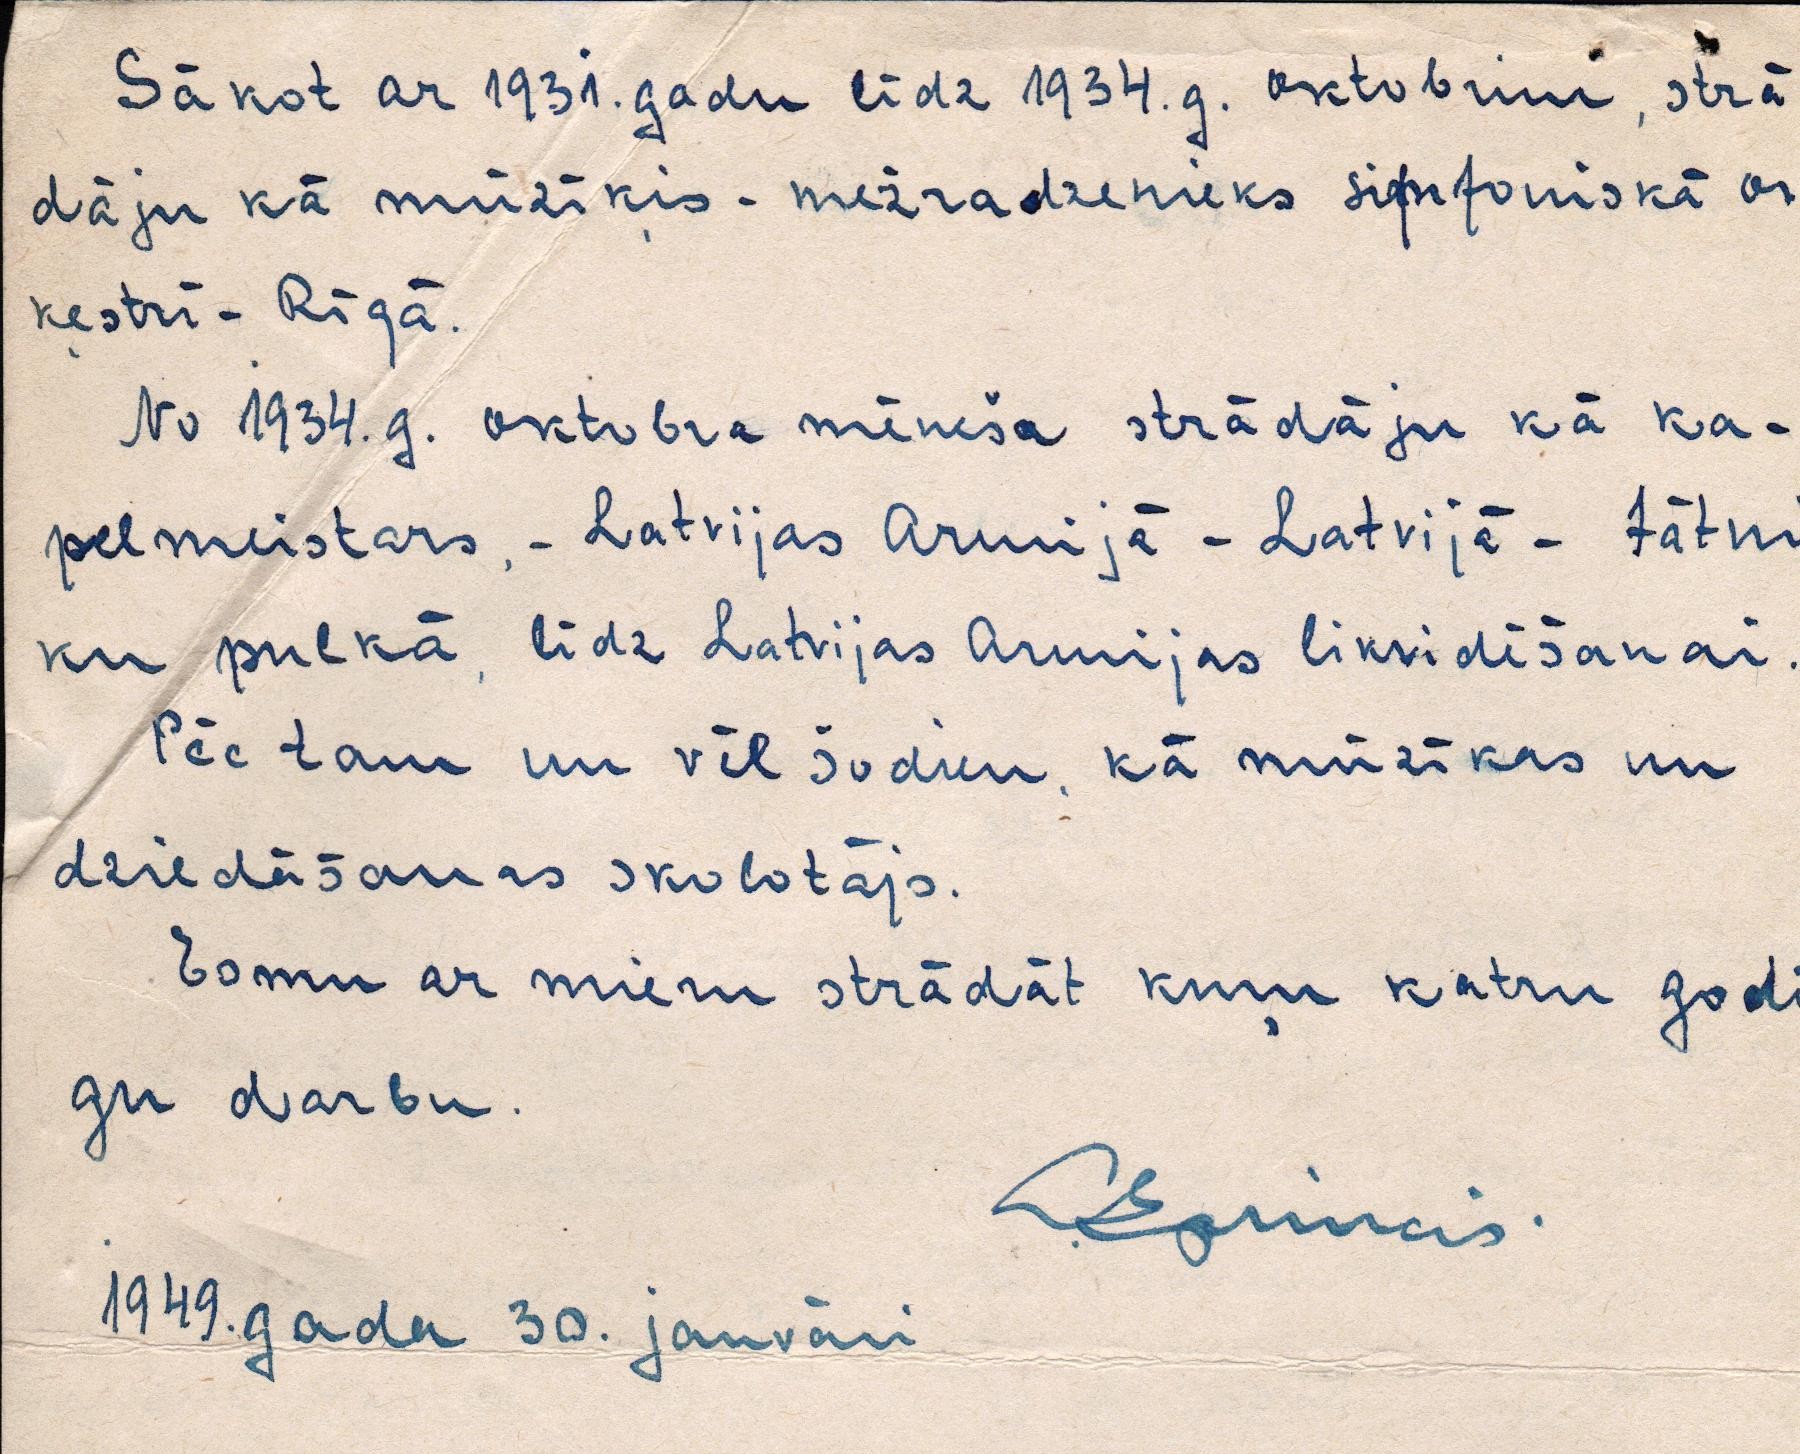 Sākot ar 1931. gadu līdz 1934. g. oktobrim, strā
dāju kā mūzīķis - mežradzenieks simfoniskā or
ķestrī - Rīgā.
No 1934. g. oktobra mēneša strādāju kā ka-
pelmeistars, - Latvijas Armijā - Latvijā - jātni
ku pulkā, līdz Latvijas Armijas likvidēšanai.
Pēc tam un vēl šodien, kā mūzīkas un
dziedāšanas skolotājs.
Esmu ar mieru strādāt kuŗu katru godī
gu darbu.
1949. gada 30. janvārī